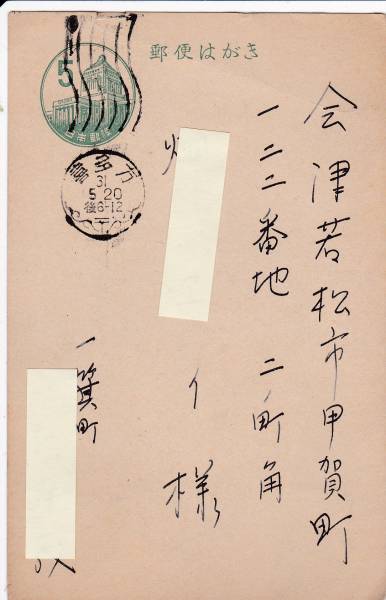 郵便はがき
5
日本郵便
喜多方
31
5.20
後6-12
会津若松市甲賀町
一二二番地 二町角
イ様
一箕町